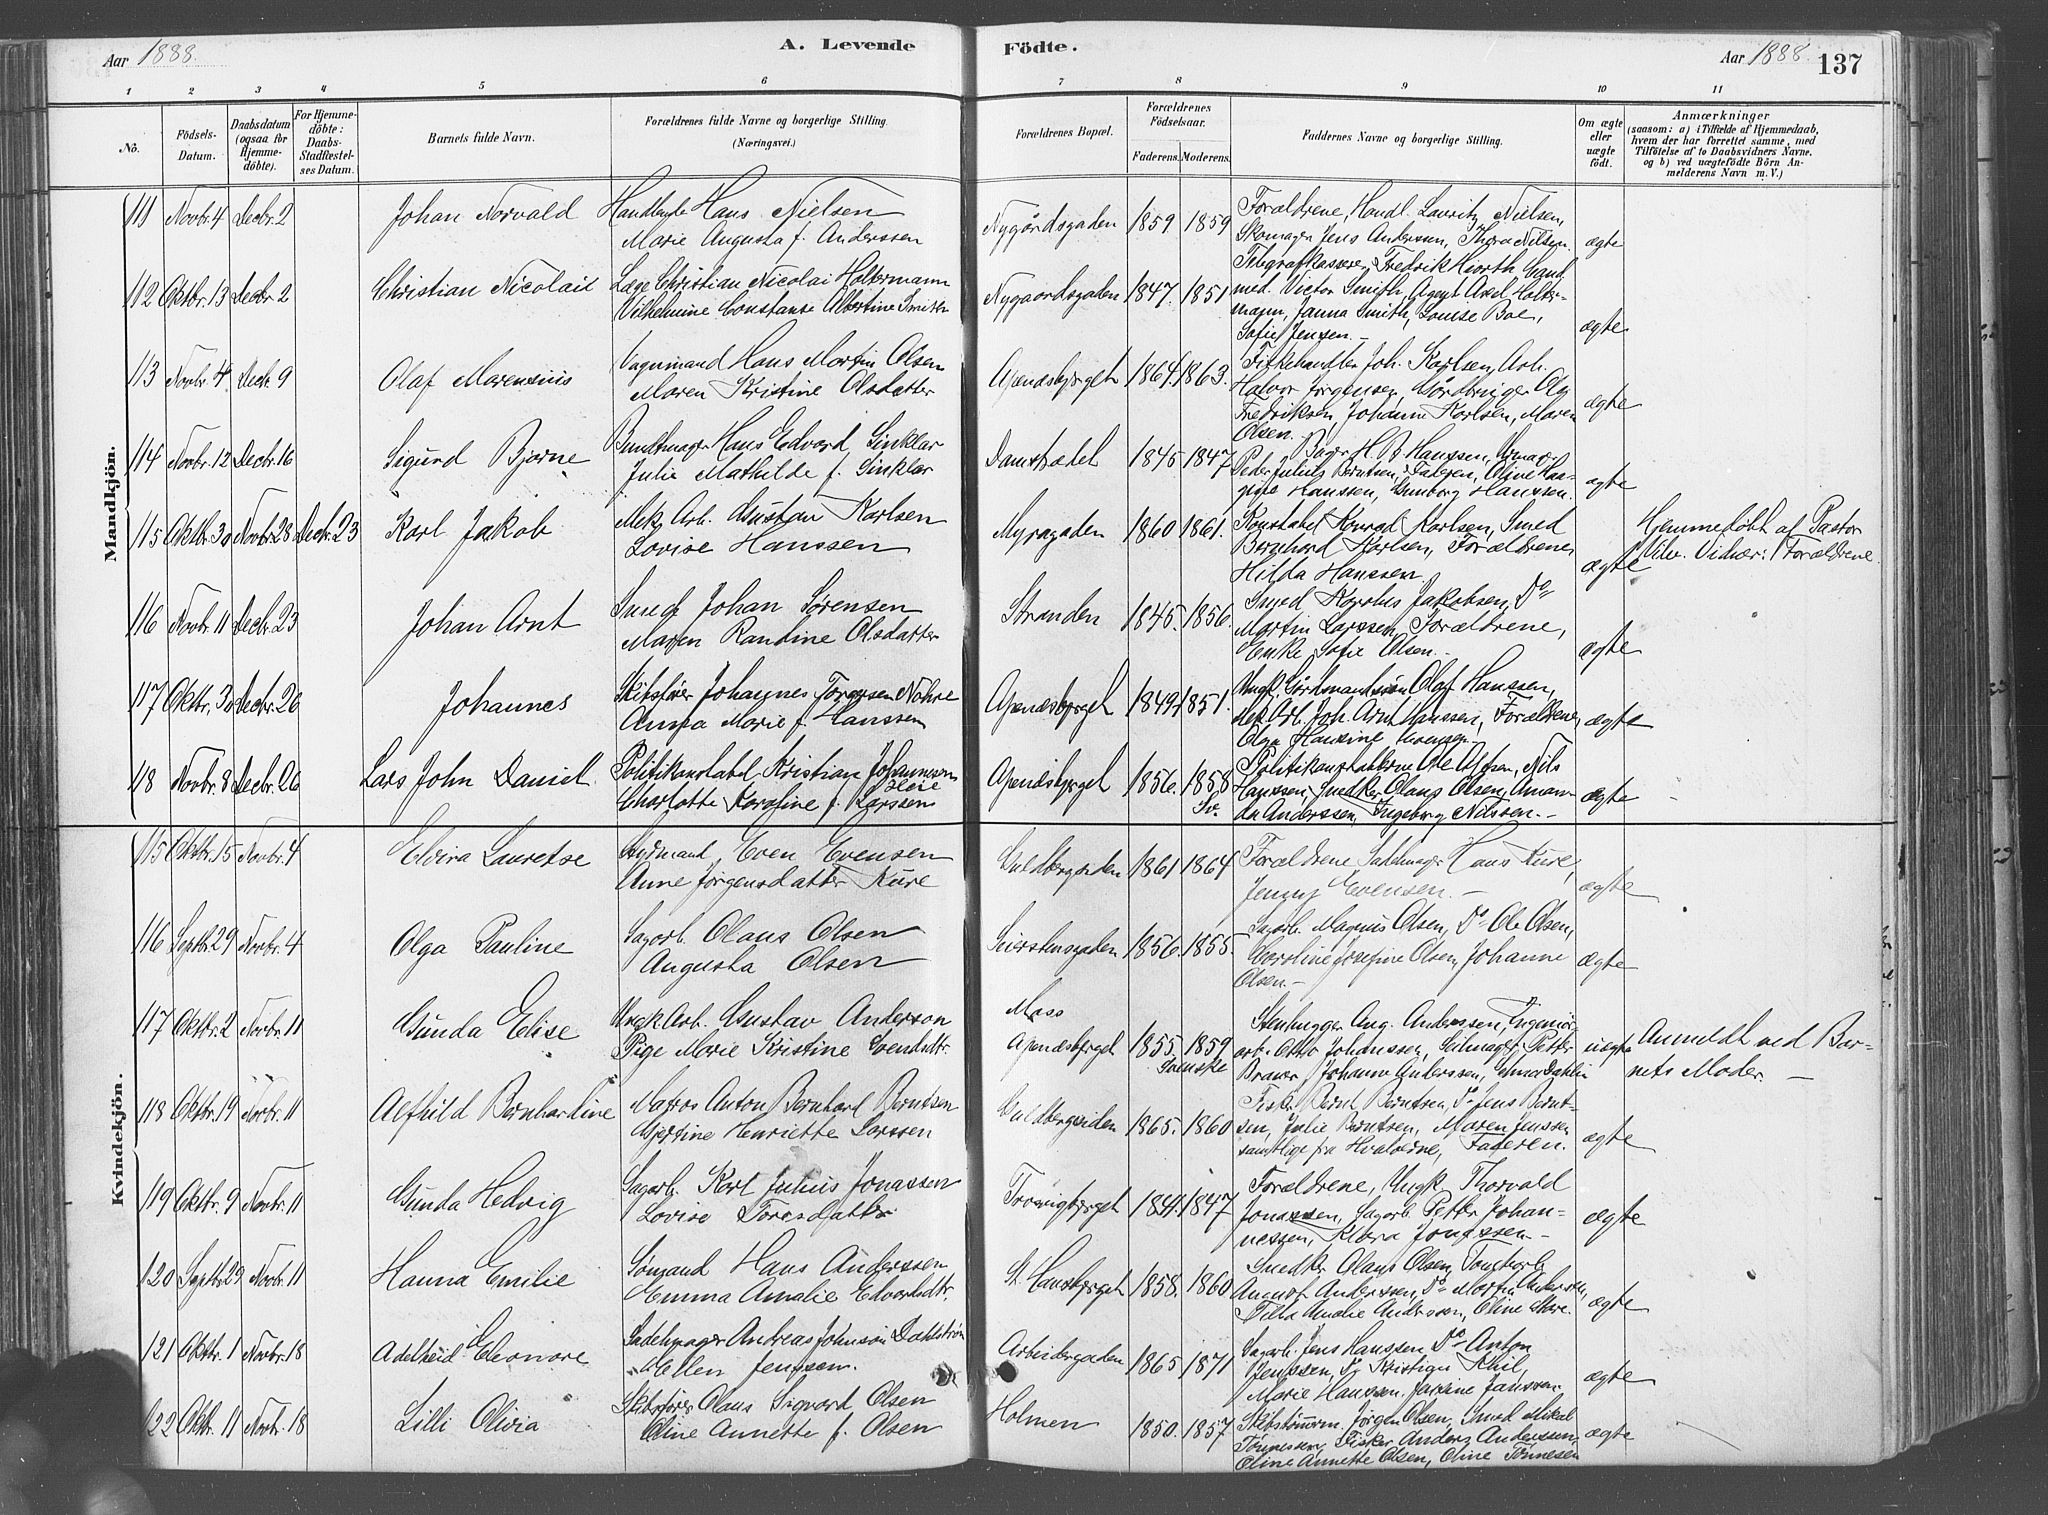 Aar 1888. A. Levende Födte. Aar 1888. 137
1 2 3 4 5 6 7 8 9 10 11
No.
Födsels-Datum.
Daabsdatum (ogsaa for Hjemmedöbte).
For Hjemmedöbte: Daabs-Stadfæstelses Datum.
Barnets fulde Navn.
Forældrenes fulde Navne og borgerlige Stilling.
(Næringsvei.)
Forældrenes Bopæl.
Forældrenes Födselsaar.
Faderens. Moderens.
Faddernes Navne og borgerlige Stilling.
Om ægte eller uægte födt.
Anmærkninger
(saasom: a) i Tilfælde af Hjemmedaab, hvem der har forrettet samme, med Tilföielse af to Daabsvidners Navne, og b) ved uægtefödte Börn Anmelderens Navn m. V.)
Mandkjön.
111 Novbr. 4 Decbr. 2 Johan Norvald Hans Nielsen
Marie Augusta f. Anderssen
Nygårdsgaden 1859 1859
Forældrene, Handl. Lauritz Nielsen,
Skomager Jens Anderssen, Thora Nilsen.
ægte
112 Oktbr. 13 Decbr. 2 Christian Nicolai Læge Christian Nicolai Holtermann
Vilhelmine Constanse Albertine Smith
Nygaardsgaden 1847. 1851
Telegrafkasserer Fredrik Hiorth, Cand.
med. Victor Smith, Agent Axel Holter-
mann, Janna Smith, Louise Boe,
Sofie Jensen.
ægte
113 Novbr. 4 Decbr. 9 Olaf Marensius Vognmand Hans Martin Olsen
Maren Kristine Olsdatter
Apenæsbjerget 1864. 1863.
Fiskehandler Joh. Karlsen, Arb.
Halvor Jørgensen, Gårdbruger Ole
Fredriksen, Johanne Karlsen, Maren
Olsen.
ægte
114 Novbr. 12 Decbr. 16 Sigurd Bjarne Buntmager Hans Edvard Sinklar
Julie Mathilde f. Sinklar
Damstrædet 1845 1847
Bager H. B. Hanssen,
Peder Julius Berntsen, Faderen, Oline
Hanssen, Gunborg Hanssen.
ægte
115 Oktbr. 30 Novbr. 28 Decbr. 23 Karl Jakob Mek. Arb. Gustav Karlsen
Lovise Hanssen
Myragaden 1860 1861.
Konstabel Konrad Karlsen, Smed
Bernhard Karlsen, Forældrene,
Hilda Hanssen
ægte
Hjemmedøbt af Pastor
Vidner: Forældrene.
116 Novbr. 11 Decbr. 23 Johan Arnt Smed Johan Sørensen
Maren Randine Olsdatter
Stranden 1845. 1856.
Smed Karolus Jakobsen, Do
Martin Larssen, Forældrene,
Enke Sofie Olsen.
ægte
117 Oktbr. 30 Decbr. 26 Johannes Skibsfører Johannes Torgersen Nøhre
Anna Marie f. Hanssen
Apenæsbjerget 1849. 1851.
Ungk. Olaf Hanssen,
Mek. Arb. Joh. Arnt Hanssen, Forældrene,
Olga Hansine
ægte
118 Novbr. 8 Decbr. 26 Lars John Daniel Politikonstabel Kristian Johannesen
Charlotte Karoline f. Larssen
Apenæsbjerget 1856. 1858
Sv.
Politikonstablerne Ole Olsen, Nils
Hanssen, Snedker Olaus Olsen, Aman-
da Anderssen, Ingeborg Nilssen.
ægte
Kvindekjön.
115 Oktbr. 15 Novbr. 4 Elvira Lauretse Styrmand Even Evensen
Anne Jørgensdatter Kure
Guldbergsiden 1861 1864
Forældrene, Sadelmager Hans Kure,
Jenny Evensen.
ægte
116 Septbr. 29 Novbr. 4 Olga Pauline Sagarb. Olaus Olsen
Augusta Olsen
Seierstensgaden 1856. 1855.
Sagarb. Magnus Olsen, Do Ole Olsen,
Caroline Josefine Olsen, Johanne
Olsen.
ægte
117 Oktbr. 2 Novbr. 11 Gunda Elise Ungk. Arb. Gustav Anderson
Pige Marie Kristine Svendsdtr.
Moss
Apenæsbjerget 1855. 1859
Svenske
Stenhugger Aug. Anderssen,
arb. Otto Johanssen, Seilmager Petter
Brauer, Johanne Anderssen, Dahlin
uægte
Anmeldt ved Bar-
nets Moder.
118 Oktbr. 19 Novbr. 11 Alfhild Bernhardine Matros Anton Bernhard Berntsen
Gjertine Henriette Larssen
Guldbergsiden 1865. 1860
Fisker Bernt Berntsen, Do Jens Bernt-
sen, Julie Berntsen, Maren Jenssen
samtlige fra Hvaløerne, Faderen.
ægte
119 Oktbr. 9 Novbr. 11 Gunda Hedvig Sagarb. Karl Julius Jonassen
Lovise Toresdatter
Trosvigbjerget 1844. 1847
Forældrene, Ungk. Thorvald
Jonassen, Sagarb. Petter Johan-
nessen, Klara Jonassen.
ægte
120 Septbr. 29 Novbr. 11 Hanna Emilie Sømand Hans Anderssen
Emma Amalie Edvardsdtr.
St. Hansbjerget 1858. 1860
Snedker Olaus Olsen,
August Anderssen, Do Martin Anderssen,
Tilla Amalie Anderssen, Oline
ægte
121 Oktbr. 1 Novbr. 18 Adelheid Eleonore Sadelmager Andreas Johnson Dahlström
Ellen Jensen.
Arbeidergaden 1865 1871
Sagarb. Jens Hanssen, Do Anton
Jenssen, Do Kristian
Marie Hanssen, Janssen.
ægte
122 Oktbr. 11 Novbr. 18 Lilli Olivia Skibsfører Olaus Sigvard Olsen
Oline Annette f. Olsen
Holmen 1850. 1857
Skibstømrm. Jørgen Olsen, Smed Mikal
Tønnessen, Fisker Anders Anderssen,
Oline Annette Olsen, Oline Tønnesen
ægte